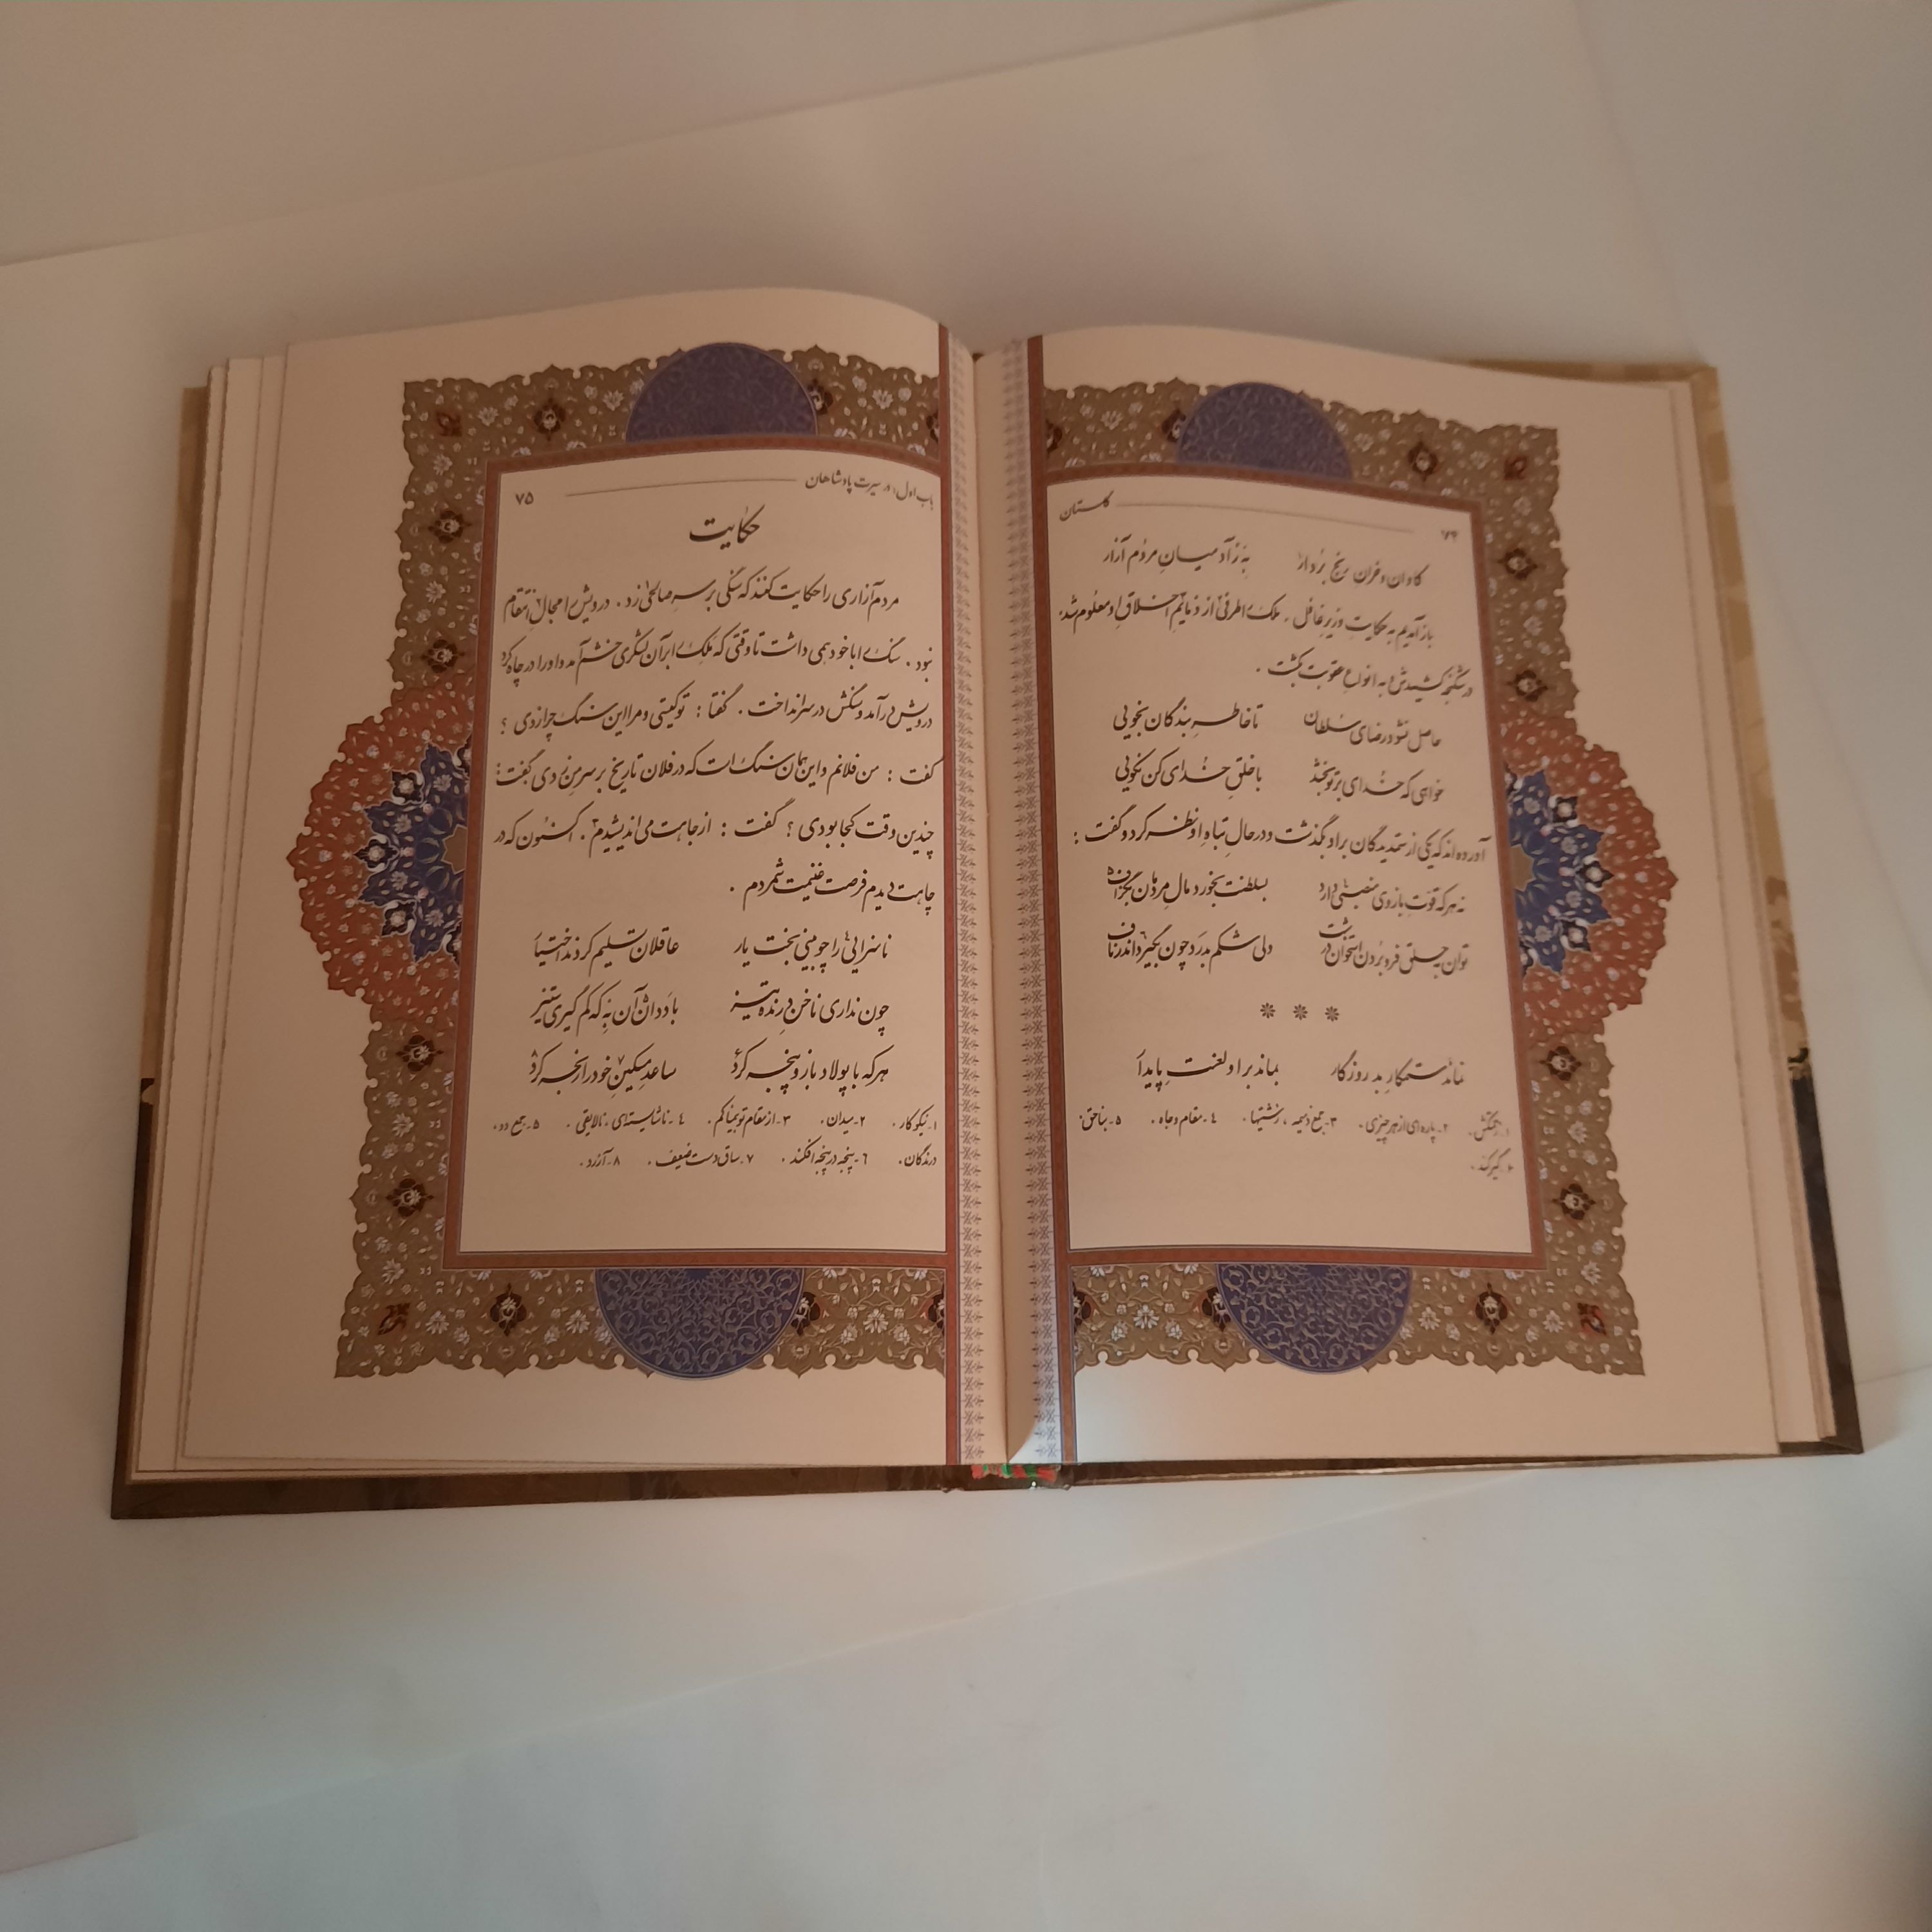 ۷۴ گلستان
گاوان و خران رنج بردار به ز آدمیان مردم آزار
باز آمدیم به حکایت وزیر غافل. ملک را طرفی از ذمائم اخلاق او معلوم شد،
در شکنجه کشیدش و به انواع عقوبت بکشت.
حاصل نشود رضای سلطان تا خاطر بندگان نجویی
خواهی که خدای بر تو بخشد با خلق خدای کن نکویی
آورده‌اند که یکی از ستمدیدگان بر او بگذشت و در حال تباه او نظر کرد و گفت:
نه هر که قوت بازوی منصبی دارد بسلطنت بخورد مال مردمان بگزاف
توان به حلق فرو بردن استخوان درشت ولی شکم بدرد چون بگیرد اندر ناف
❊ ❊ ❊
نماند ستمکار بد روزگار بماند بر او لعنت پایدار
۲ـ پاره‌ای از هر چیزی. ۳ـ جمع ذمیمه، زشتیها. ٤ـ مقام و جاه. ۵ـ بناحق.
٦ـ گیر کند.
باب اول: در سیرت پادشاهان ۷۵
حکایت
مردم آزاری را حکایت کنند که سنگی بر سر صالحی زد. درویش را مجال انتقام
نبود. سنگ را با خود همی داشت تا وقتی که ملک را بر آن لشکری خشم آمد و او را در چاه کرد
درویش در آمد و سنگش در سر انداخت. گفتا: تو کیستی و مرا این سنگ چرا زدی؟
گفت: من فلانم و این همان سنگ است که در فلان تاریخ بر سر من زدی گفت:
چندین وقت کجا بودی؟ گفت: از جاهت می‌اندیشیدم. اکنون که در
چاهت دیدم فرصت غنیمت شمردم.
ناسزایی را چو بینی بخت یار عاقلان تسلیم کردند اختیار
چون نداری ناخن درنده تیز با ددان آن به که کم گیری ستیز
هر که با پولاد بازو پنجه کرد ساعد مسکین خود را رنجه کرد
۱ـ نیکو کار. ۲ـ میدان. ۳ـ از مقام تو بیمناکم. ٤ـ ناشایسته‌ای، نالایقی. ۵ـ جمع دد،
درندگان. ٦ـ پنجه در پنجه افکند. ۷ـ ساق دست ضعیف. ۸ـ آزرد.